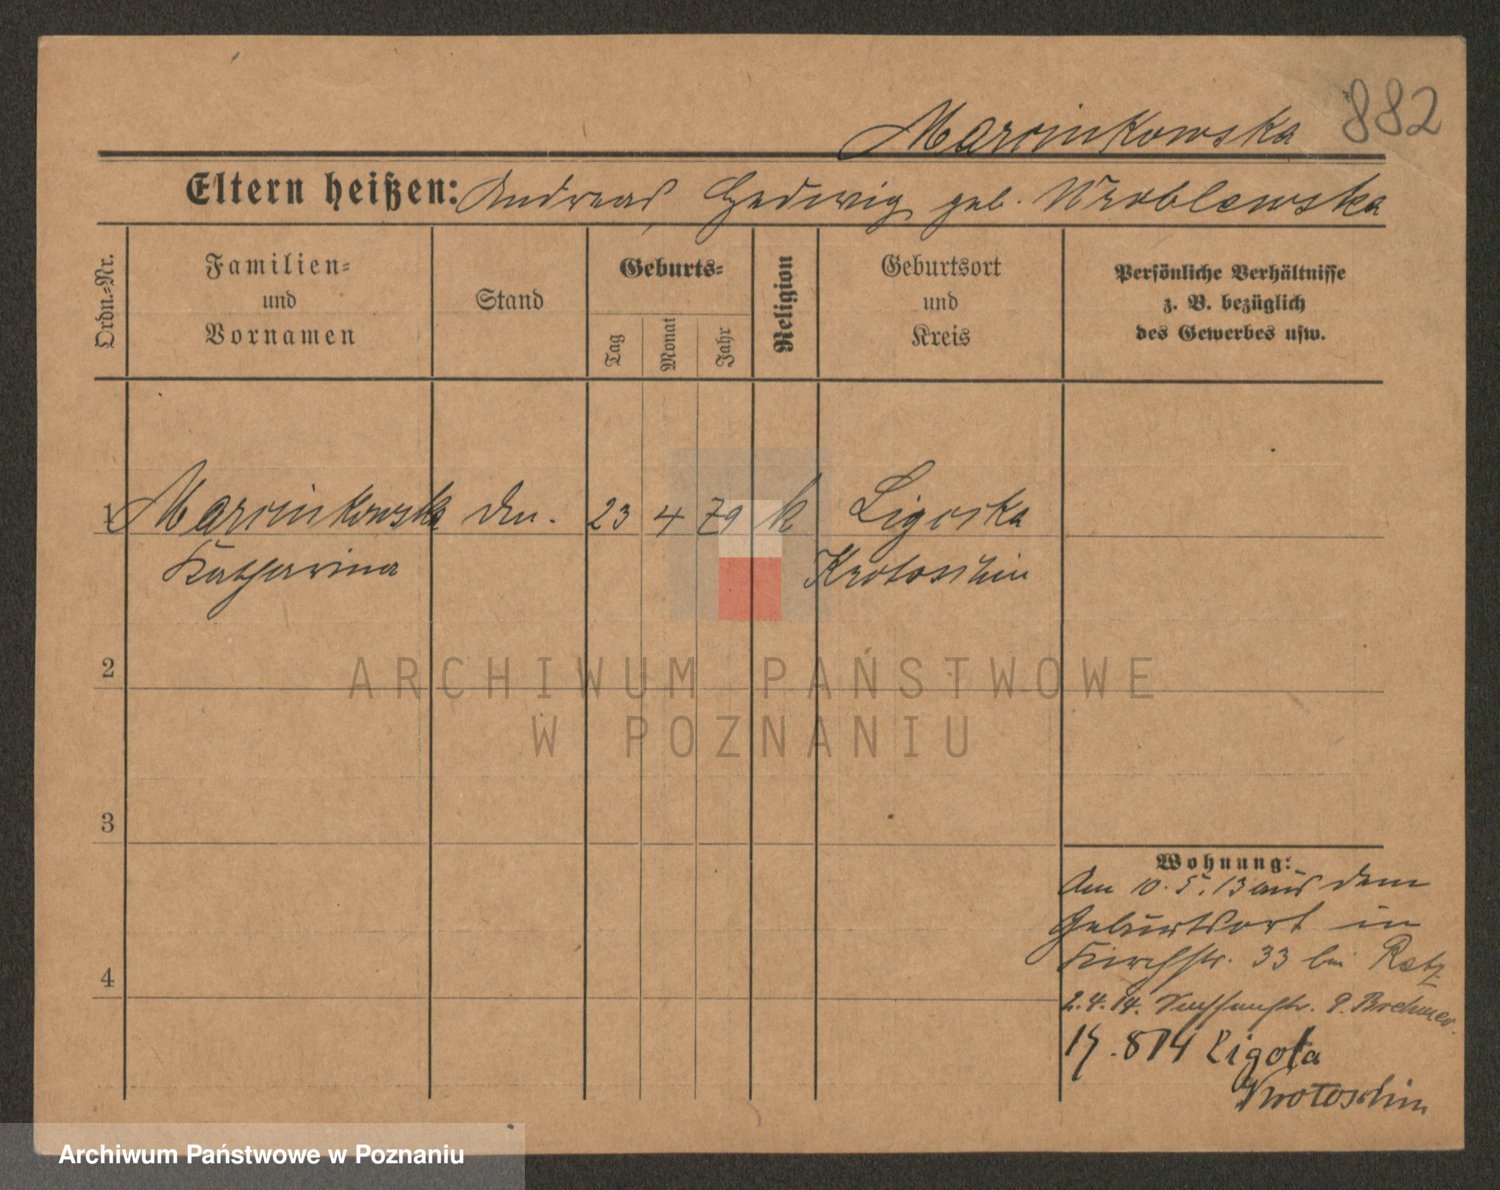 882
Marcinkowska
Eltern heißen: Andreas Hedwig geb. Wroblewska
Ordn.-Nr.
Familien-
und
Vornamen
Stand
Geburts-
Tag
Monat
Jahr
Religion
Geburtsort
und
Kreis
Persönliche Verhältnisse
z. B. bezüglich
des Gewerbes usw.
1 Marcinkowska 23 4 79 k Ligocka
Katharina Krotoschin
2
ARCHIWUM PAŃSTWOWE
W POZNANIU
3
4
Wohnung:
Am 10.5.13 aus dem
Geburtsort in
Kirchstr. 33 bei Ratz
2.4.14. Brehmer.
Ligota
Krotoschin
Archiwum Państwowe w Poznaniu